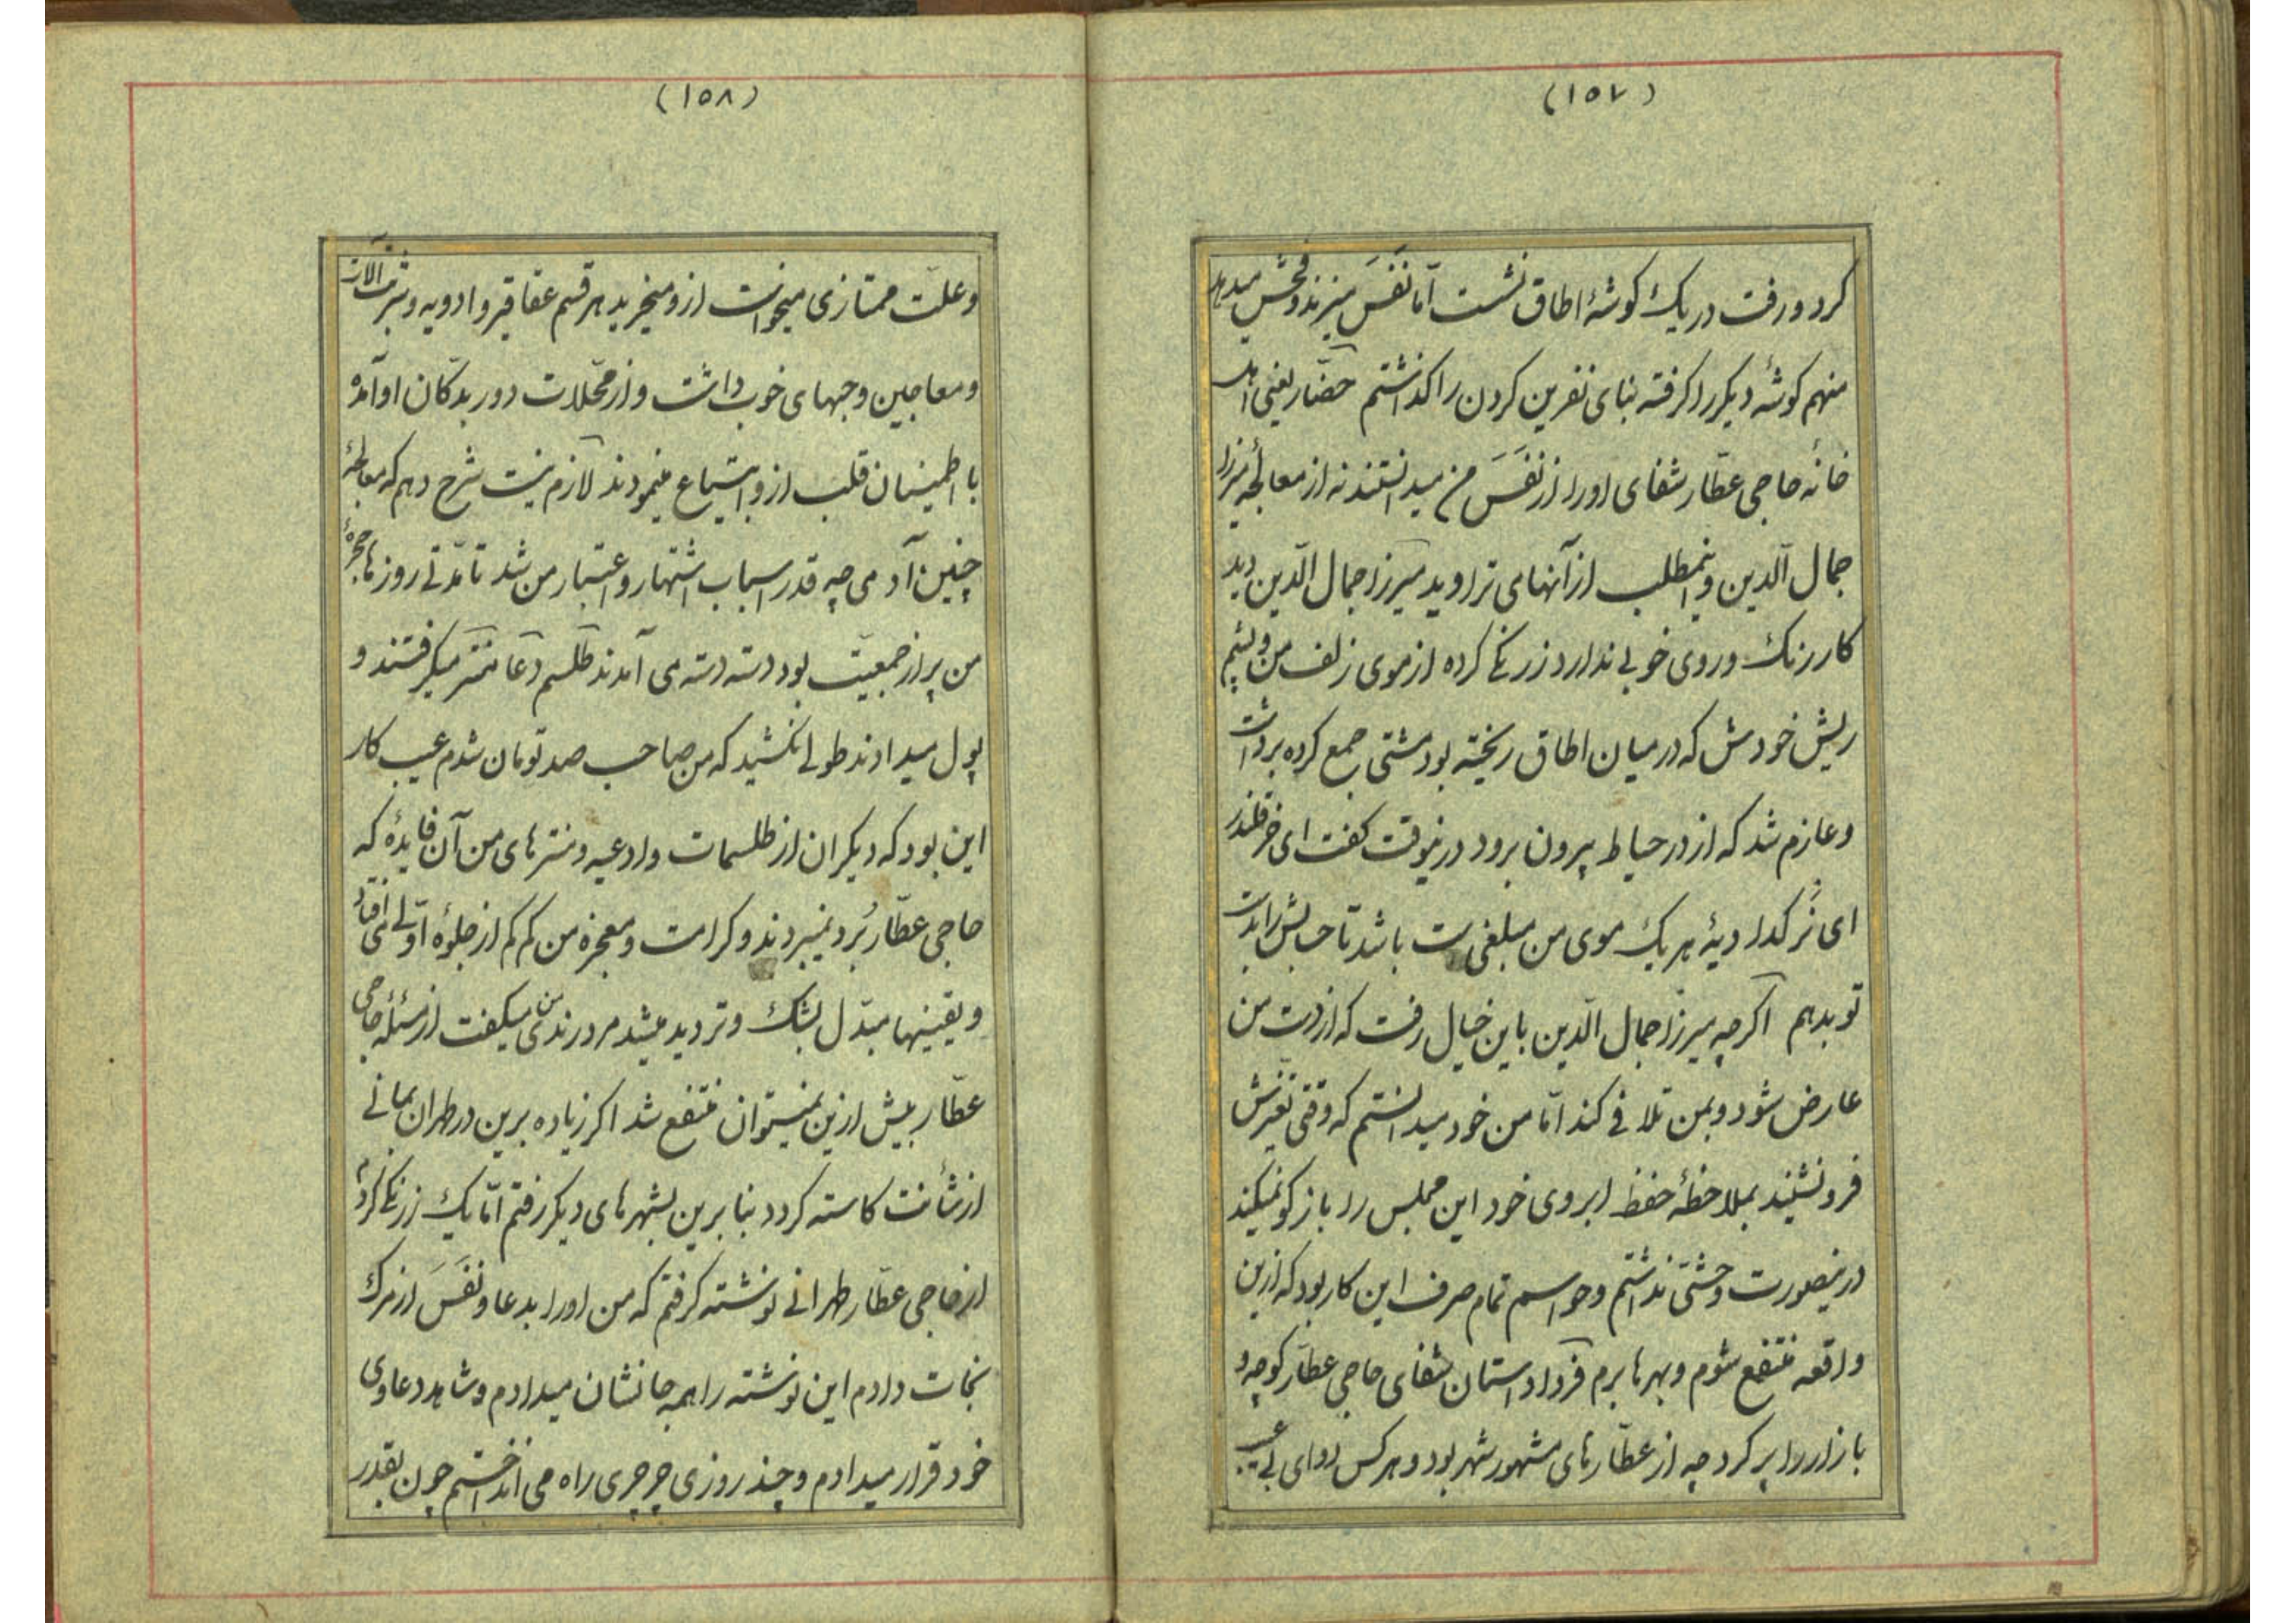 (۱۵۷)
کرد و رفت در یک کوشهٔ اطاق نشست امّا نَفَسَ میزند و فحش میدهد
منهم کوشهٔ دیکر را کرفته بنای نفرین کردن را کذاشتم حضّار یعنی اهل
خانهٔ حاجی عطّار شفای او را از نَفَسَ من میدانستند نه از معالجهٔ میرزا
جمال الدّین و اینمطلب از آنهای تراوید میرزا جمال الدّین دید
کار رنک و روی خوبی ندارد زرنکی کرده از موی زلف من و پشم
ریش خودش که در میان اطاق ریخته بود مشتی جمع کرده برداشت
و عازم شد که از در حیاط بیرون برود درینوقت کفت ای خر قلندر
ای نرّ کدا دیهٔ هر یک موی من مبلغی ست باشد تا حسابش را بدست
تو بدهم اکرچه میرزا جمال الدّین باین خیال رفت که از دست من
عارض شود و بمن تلافی کند امّا من خود میدانستم که وقتی تغیّرش
فرو نشیند بملاحظهٔ حفظ ابروی خود این مجلس را بازکو نمیکند
درینصورت وحشتی نداشتم و حواسم تمام صرف این کار بود که ازین
واقعه منتفع شوم و بهرها برم فردا داستان شفای حاجی عطّار کوچه و
بازار را پر کرد چه از عطّارهای مشهور شهر بود و هر کس دوای بی عیب
(۱۵۸)
و علّت ممتازی میخواست ازو میخرید هر قسم عقاقیر و ادویه و شربت آلات
و معاجین و جبهای خوب داشت و از محّلات دور بدکان او آمده
با اطمینان قلب ازو ابتیاع مینمودند لازم نیست شرح دهم که معالجهٔ
چنین آدمی چه قدر اسباب اشتهار و اعتبار من شد تا مدّتی روزها حجرهٔ
من پر از جمعیّت بود دسته دسته می آمدند طلسم دعا منتر میکرفتند و
پول میدادند طولی نکشید که من صاحب صد تومان شدم عیب کار
این بود که دیکران از طلسمات و ادعیه و منترهای من آن فایدهٔ که
حاجی عطّار بُرد نمیبردند و کرامت و معجزه من کم کم از جلوهٔ اوّلی می افتاد
و یقینها مبدّل بشک و تردید میشد مرد رندی بمن میکفت از مسئله حاجی
عطّار بیش ازین نمیتوان منتفع شد اکر زیاده برین در طهران بمانی
از شأنت کاسته کردد بنا برین بشهرهای دیکر رفتم امّا یک زرنکی کردم
از حاجی عطّار طهرانی نوشته کرفتم که من او را بدعا و نَفَسَ از مرک
نجات دادم این نوشته را همه جا نشان میدادم و شاهد دعاوی
خود قرار میدادم و چند روزی چرچری راه می انداختم چون بقدر